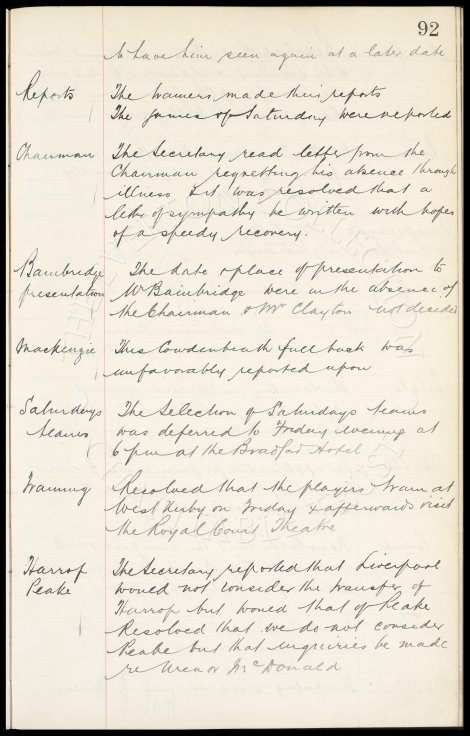 92
to have him seen again at a later date
Reports The trainers made their reports
The games of Saturday were reported
Chairman The Secretary read letter from the
Chairman regretting his absence through
illness & it was resolved that a
letter of sympathy be written with hopes
of a speedy recovery.
Bainbridge The date & place of presentation to
presentation Mr Bainbridge were in the absence of
the Chairman & Mr Clayton not decided
Mackenzie This Cowdenbeath full back was
unfavorably reported upon
Saturdays The selection of Saturdays teams
teams was deferred to Friday evening at
6 pm at the Bradford Hotel
Training Resolved that the players train at
West Derby on Friday & afterwards visit
the Royal Court Theatre
Harrop The Secretary reported that Liverpool
Peake would not consider the transfer of
Harrop but would that of Peake
Resolved that we do not consider
Peake but that inquiries be made
re Uren or McDonald